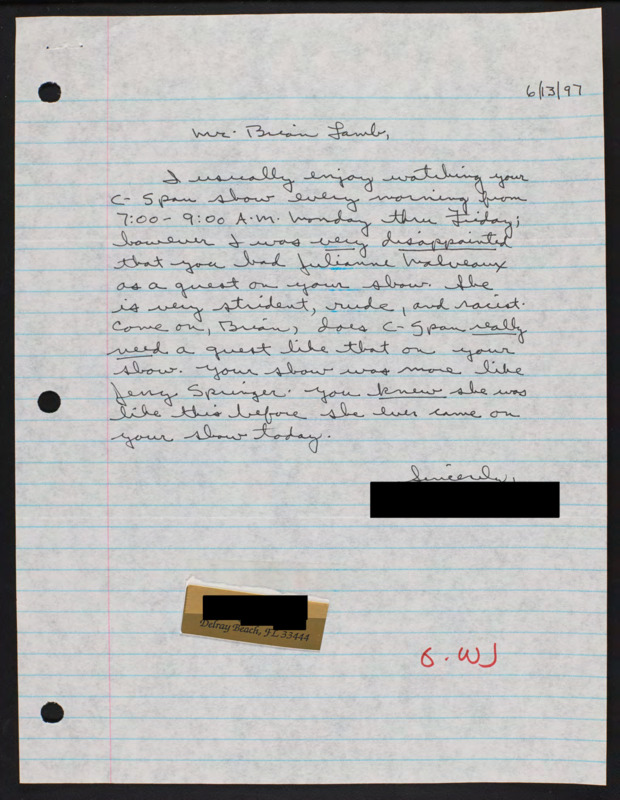 6/13/97
Mr. Brian Lamb,
I usually enjoy watching your
C-Span show every morning from
7:00-9:00 A.M. Monday thru Friday;
however I was very disappointed
that you had Julianne Malveaux
as a guest on your show. She
is very strident, rude, and racist.
Come on, Brian, does C-Span really
need a guest like that on your
show. Your show was more like
Jerry Springer. You knew she was
like this before she ever came on
your show today.
Sincerely,
Delray Beach, FL 33444
6. WJ